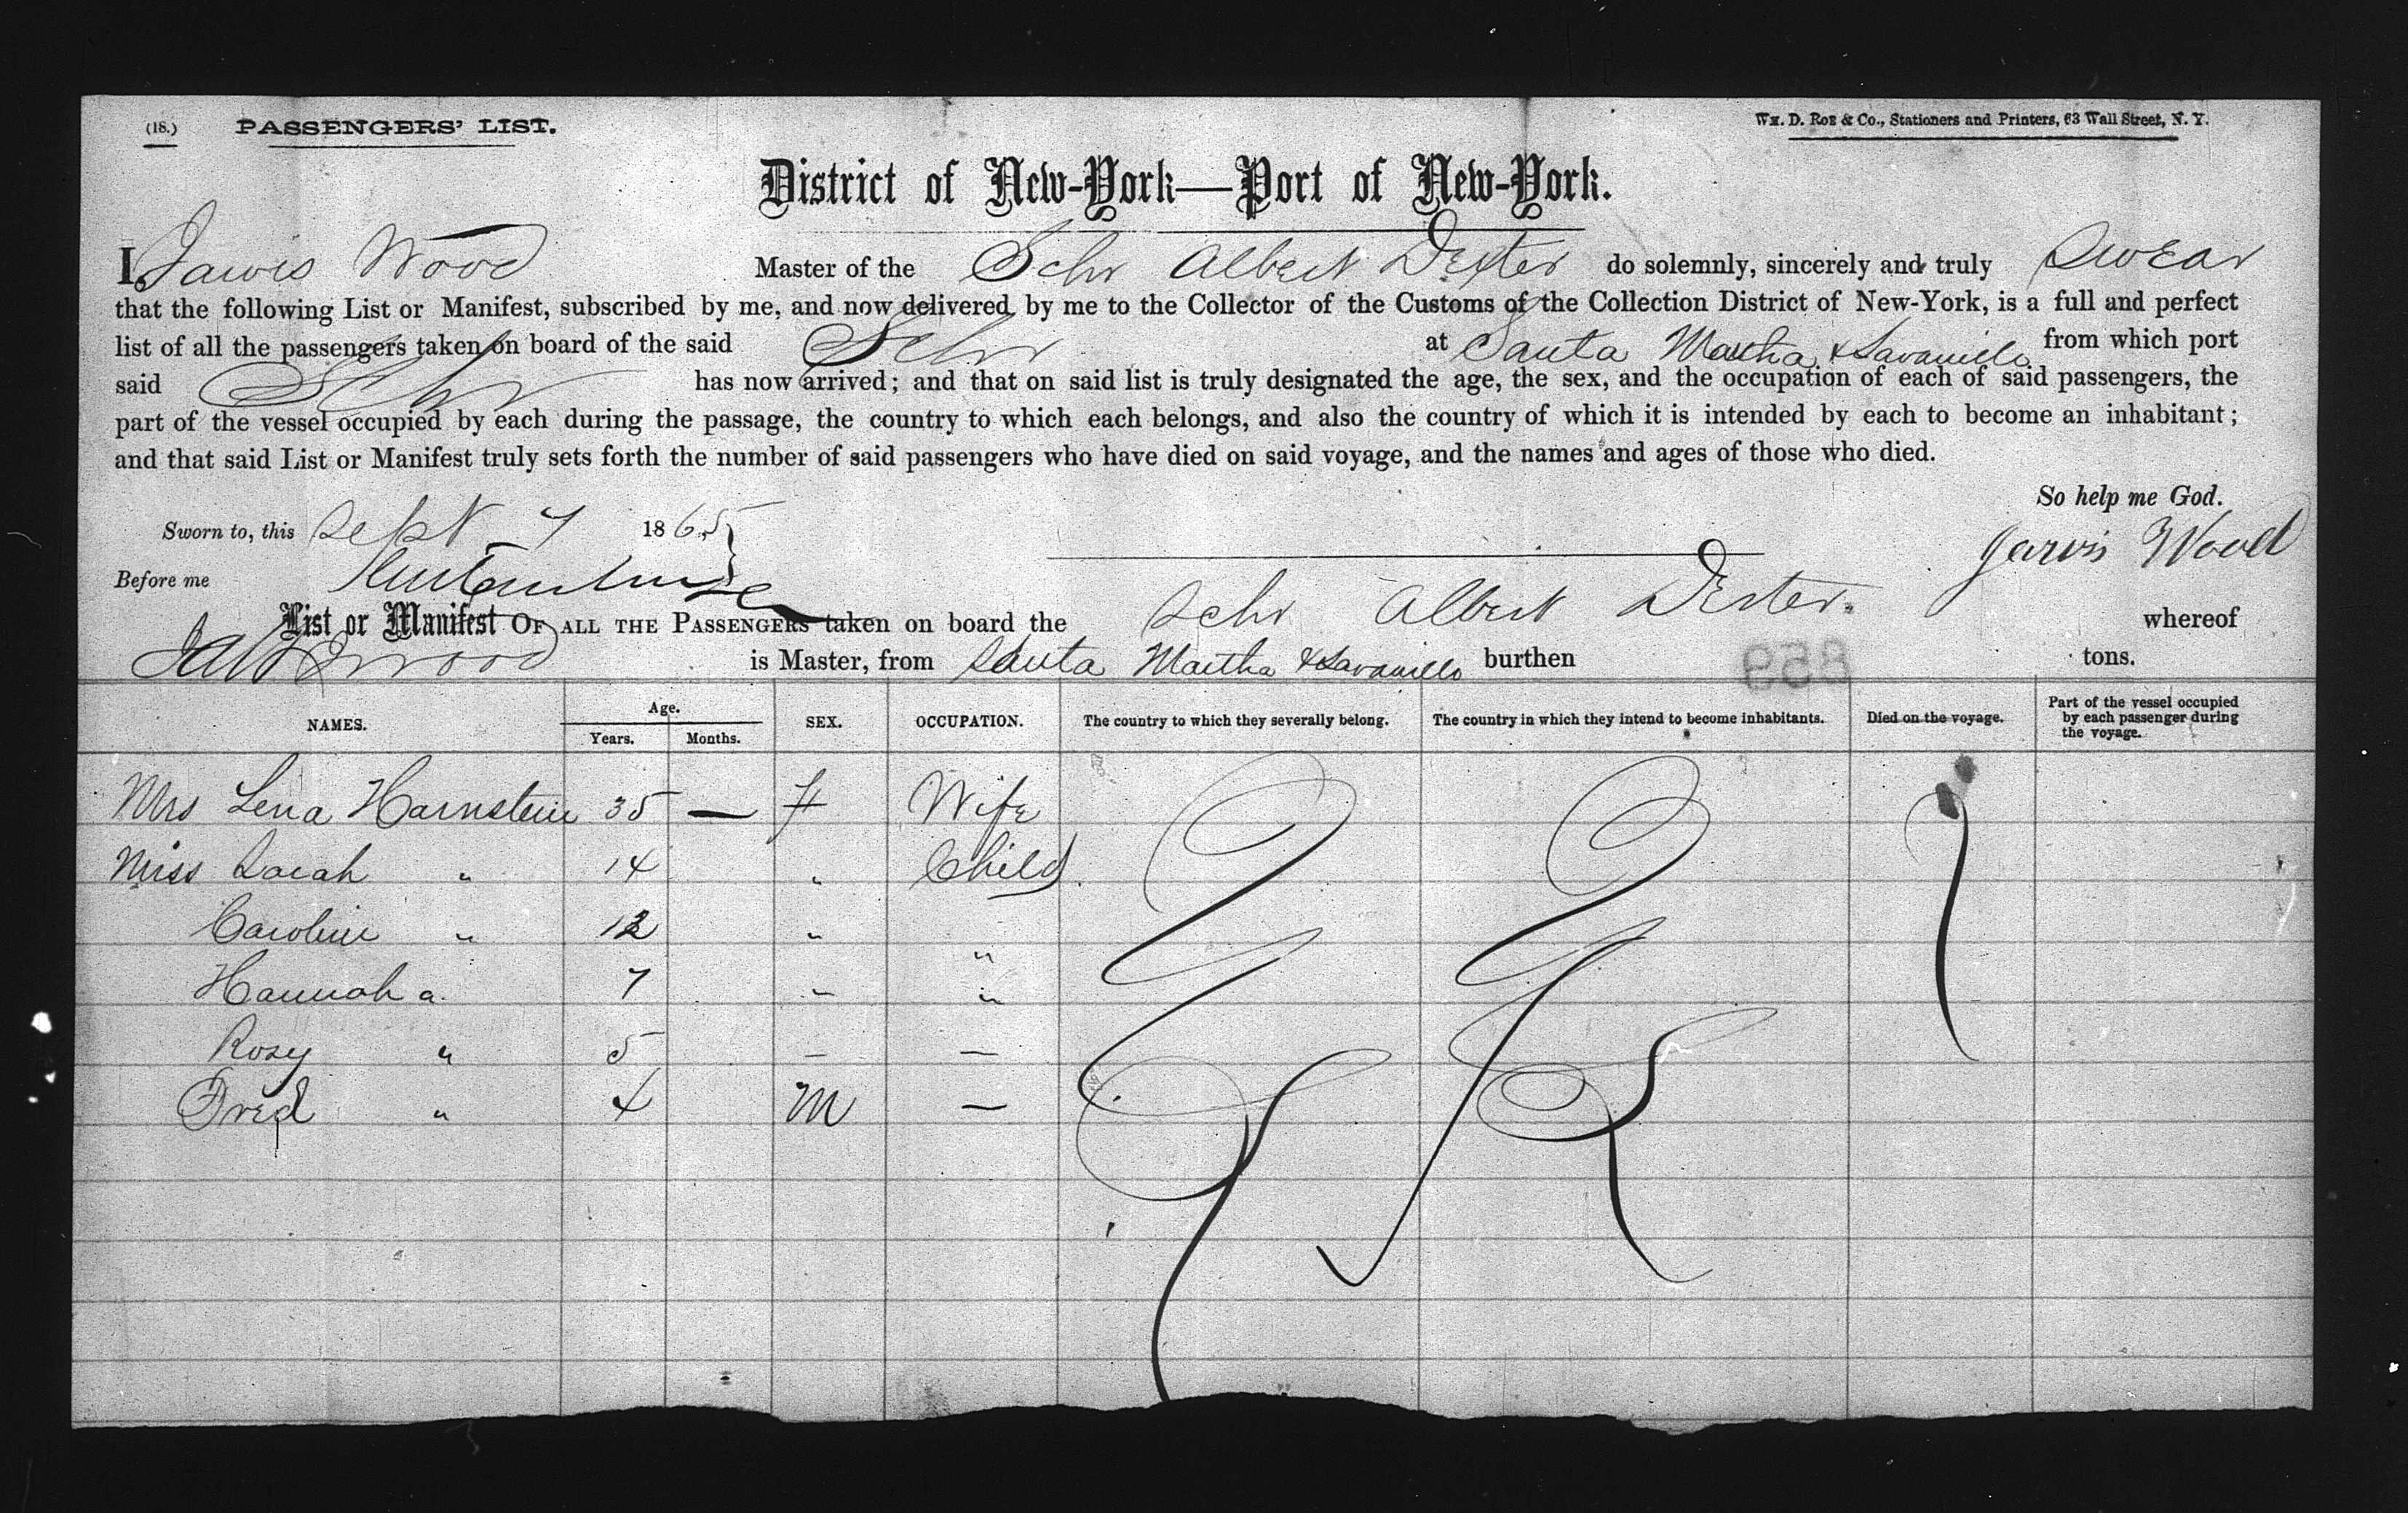 (18.) PASSENGERS' LIST.
WM. D. ROE & Co., Stationers and Printers, 63 Wall Street, N. Y.
District of New-York—Port of New-York.
I, Jarvis Wood Master of the Schr Albert Dexter do solemnly, sincerely and truly Swear
that the following List or Manifest, subscribed by me, and now delivered by me to the Collector of the Customs of the Collection District of New-York, is a full and perfect
list of all the passengers taken on board of the said Schr at Santa Martha & Savanillo from which port
said Schr has now arrived; and that on said list is truly designated the age, the sex, and the occupation of each of said passengers, the
part of the vessel occupied by each during the passage, the country to which each belongs, and also the country of which it is intended by each to become an inhabitant;
and that said List or Manifest truly sets forth the number of said passengers who have died on said voyage, and the names and ages of those who died.
So help me God.
Sworn to, this Sept 7 1865
Jarvis Wood
Before me
List or Manifest OF ALL THE PASSENGERS taken on board the Schr Albert Dexter whereof
Wood is Master, from Santa Martha & Savanillo burthen tons.
859
NAMES. Age. Years. Months. SEX. OCCUPATION. The country to which they severally belong. The country in which they intend to become inhabitants. Died on the voyage. Part of the vessel occupied by each passenger during the voyage.
Mrs Lena Harnstein 35 — f Wife
Miss Sarah " 14 " Child
Caroline " 12 " "
Hannah a. 7 " "
Rosy " 5 — —
Fred " 4 M —